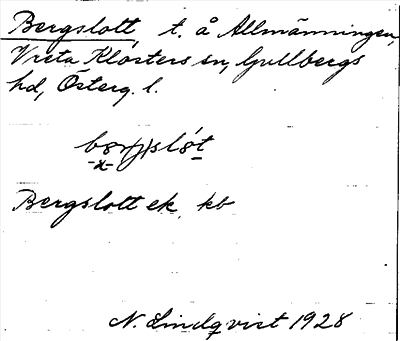 Bergslott, t. å Allmänningen,
Vreta Klosters sn, Gullbergs
hd, Österg. l.
Bergslott ek. kb
N. Lindqvist 1928